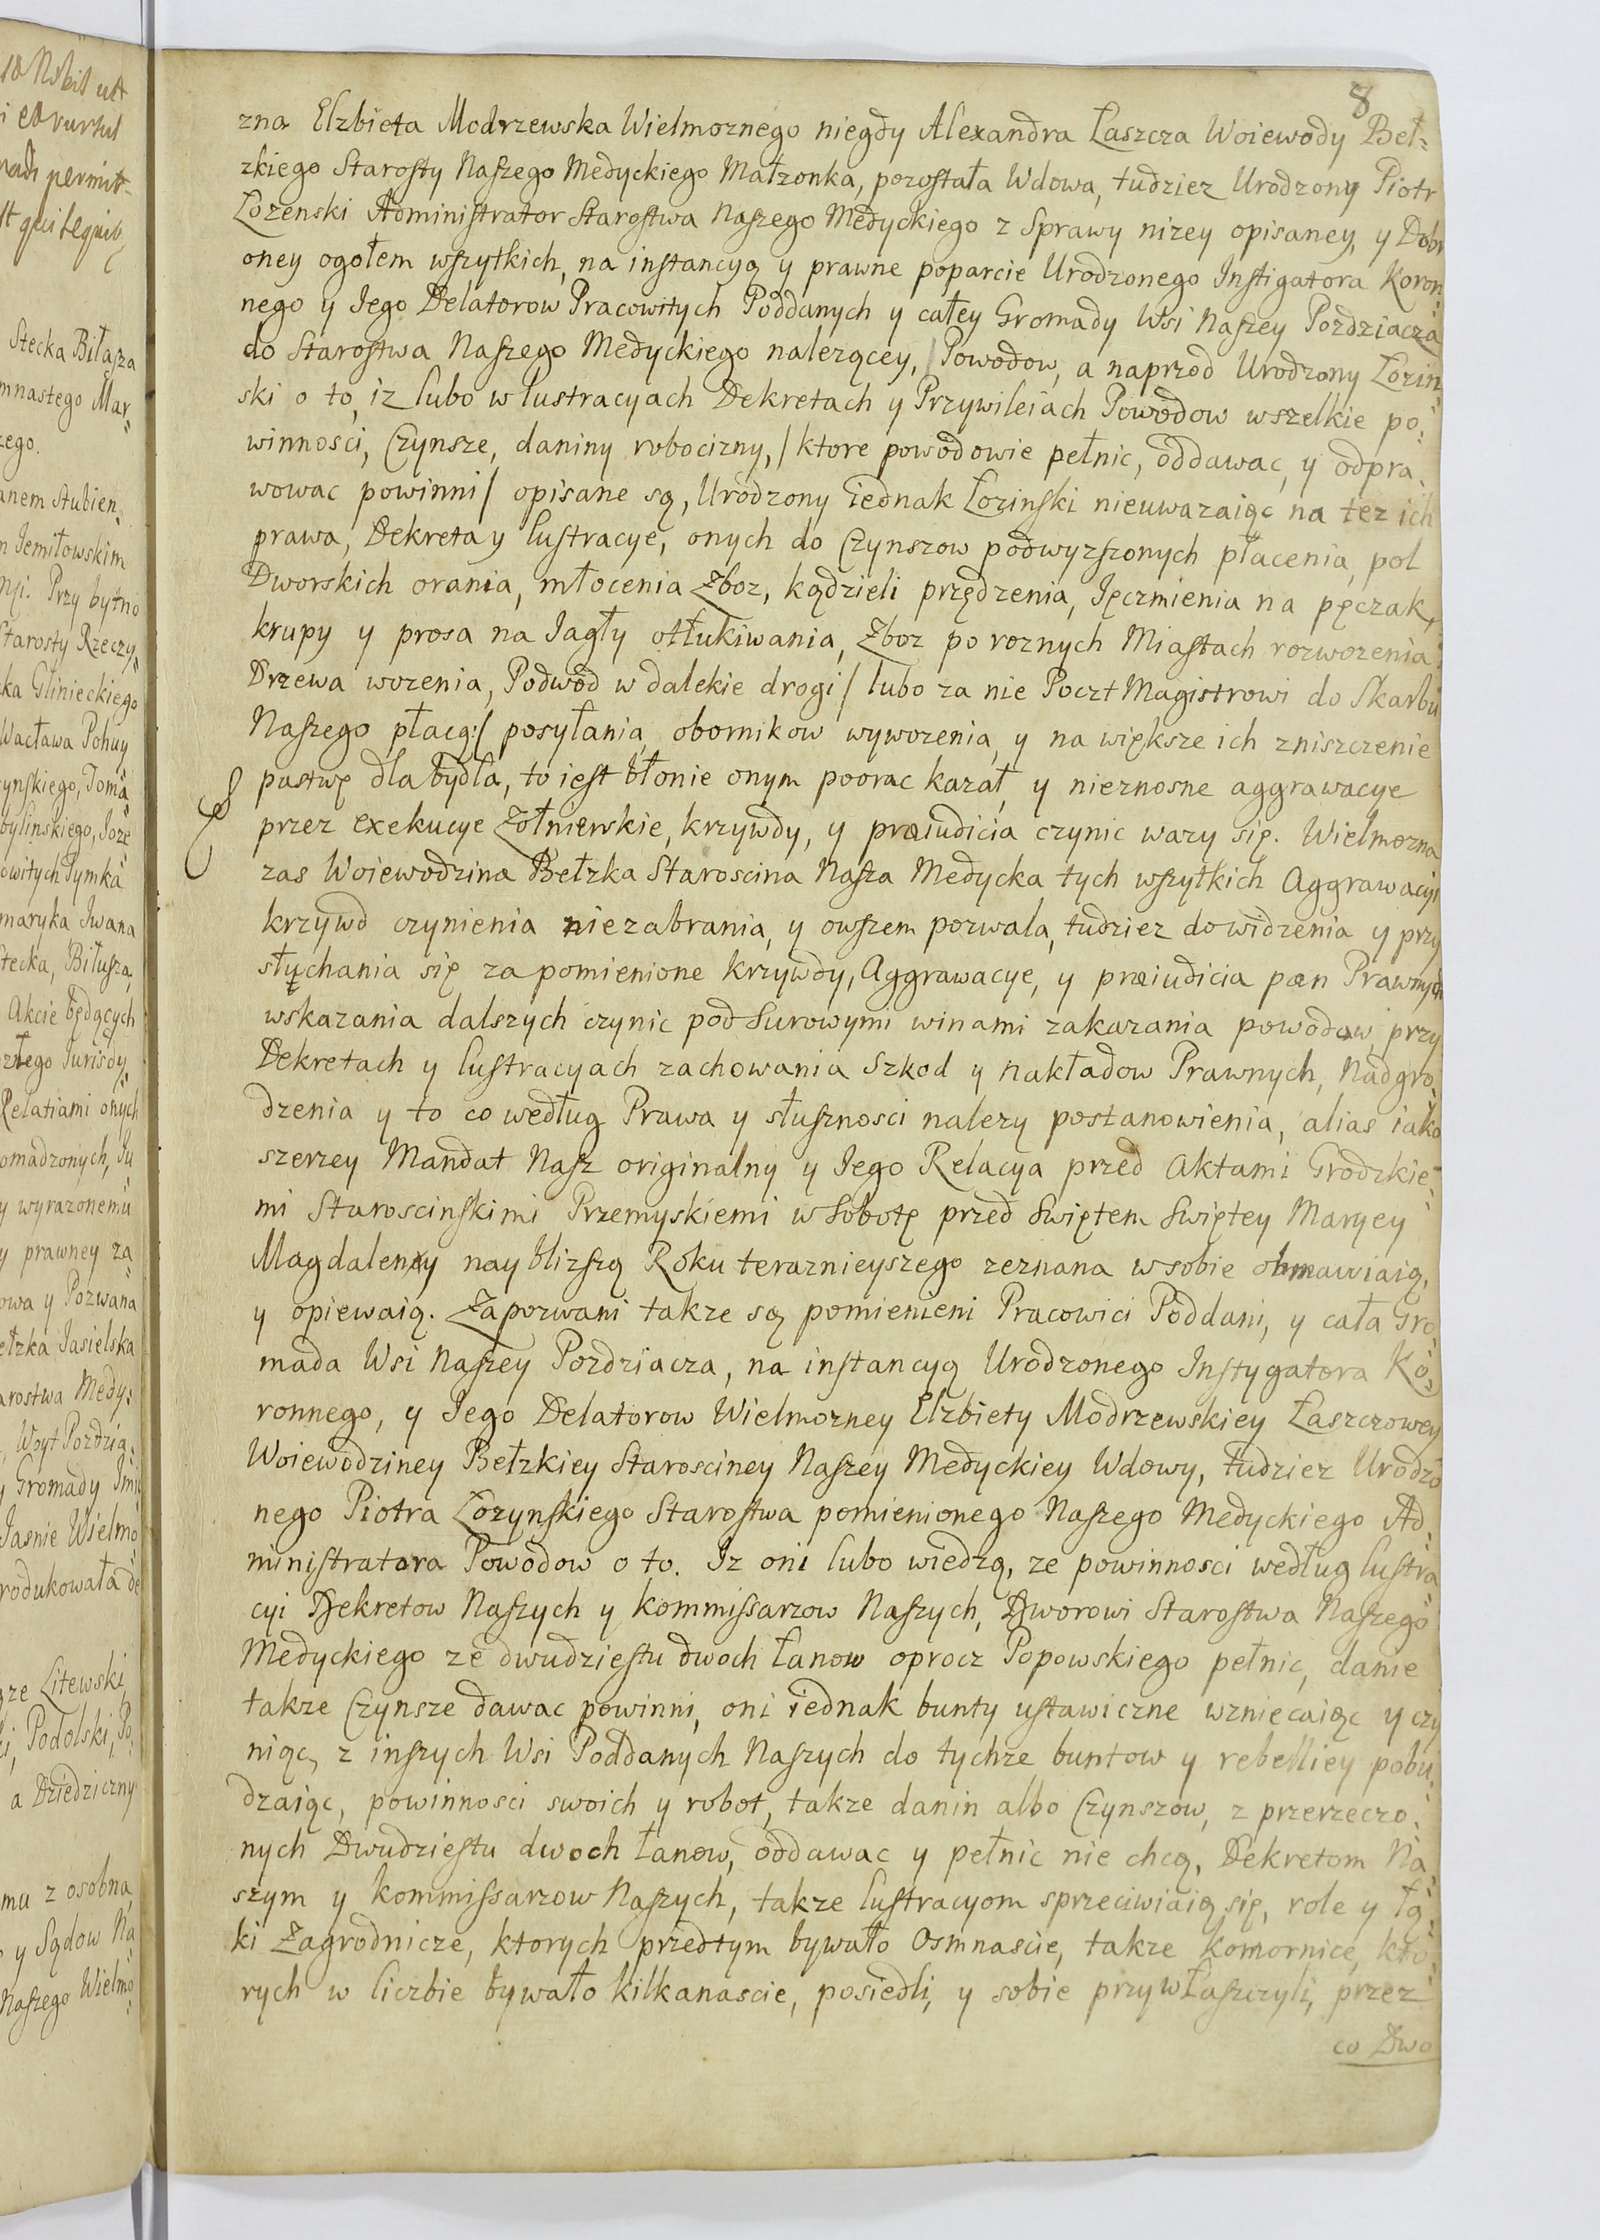 8
zna Elzbieta Modrzewska Wielmoznego niegdy Alexandra Łaszcza Woiewody Beł=
zkiego Starosty Naszego Medyckiego Małzonka, pozostała Wdowa, tudziez Urodzony Piotr
Łozenski Administrator Starostwa Naszego Medyckiego z Sprawy nizey opisaney, y Dobr
oney ogołem wszytkich, na instancyą y prawne poparcie Urodzonego Instigatora Koron=
nego y Iego Delatorow Pracowitych Poddanych y całey Gromady Wsi Naszey Pozdziacza
do Starostwa Naszego Medyckiego nalezącey, / Powodow, a naprzod Urodzony Łozin=
ski o to, iz lubo w lustracyach Dekretach y Przywileiach Powodow wszelkie po=
winnosci, Czynsze, daniny robocizny, / ktore powodowie pełnic, oddawac, y odpra=
wowac powinni / opisane są, Urodzony iednak Łozinski nieuwazaiąc na tez ich
prawa, Dekreta y lustracye, onych do Czynszow podwyzszonych płacenia, pol
Dworskich orania, młocenia Zboz, kądzieli przędzenia, Ięczmienia na pęczak,
krupy y prosa na Iagły otłukiwania, Zboz po roznych Miastach rozwozenia
Drzewa wozenia, Podwod w dalekie drogi / lubo za nie Poczt Magistrowi do Skarbu
Naszego płacą: / posyłania, obornikow wywozenia, y na większe ich zniszczenie
pastwę dla bydła, to iest błonie onym poorac kazał, y nieznosne aggrawacye
przez exekucye Zołnierskie, krzywdy, y præiudicia czynic wazy się. Wielmozna
zas Woiewodzina Bełzka Staroscina Nasza Medycka tych wszytkich Aggrawacyi
krzywd czynienia niezabrania, y owszem pozwala, tudziez do widzenia y przy
słychania się za pomienione krzywdy, Aggrawacye, y præiudicia pæn Prawnych
wskazania dalszych czynic pod Surowymi winami zakazania powodow przy
Dekretach y lustracyach zachowania Szkod y nakładow Prawnych, Nadgro=
dzenia y to co według Prawa y słusznosci nalezy postanowienia, alias iako
szerzey Mandat Nasz originalny y Iego Relacya przed Aktami Grodzkie=
mi Staroscinskimi Przemyskiemi w Sobotę przed Swiętem Swiętey Maryey
Magdaleny nayblizszą Roku teraznieyszego zeznana w sobie obmawiaią,
y opiewaią. Zapozwani takze są pomienieni Pracowici Poddani, y cała Gro=
mada Wsi Naszey Pozdziacza, na instancyą Urodzonego Instygatora Ko=
ronnego, y Iego Delatorow Wielmozney Elzbiety Modrzewskiey Łaszczowey
Woiewodziney Bełzkiey Starosciney Naszey Medyckiey Wdowy, tudziez Urodzo
nego Piotra Łozynskiego Starostwa pomienionego Naszego Medyckiego Ad=
ministratora Powodow o to. Iz oni lubo wiedzą, ze powinnosci według lustra
cyi Dekretow Naszych y kommissarzow Naszych, Dworowi Starostwa Naszego
Medyckiego ze dwudziestu dwoch Łanow oprocz Popowskiego pełnic, danie
takze Czynsze dawac powinni, oni iednak bunty ustawiczne wzniecaiąc y czy
niąc, z inszych Wsi Poddanych Naszych do tychze buntow y rebelliey pobu=
dzaiąc, powinnosci swoich y robot, takze danin albo Czynszow, z przerzeczo=
nych Dwudziestu dwoch Łanow, oddawac y pełnic nie chcą, Dekretom Na=
szym y kommissarzow Naszych, takze lustracyom sprzeciwiaią się, role y łą=
ki Zagrodnicze, ktorych przedtym bywało Osmnascie, takze komornice, kto=
rych w liczbie bywało kilkanascie, posiedli, y sobie przywłaszczyli, przez
co Dwo
Stecka Biłasza
mnastego Mar=
zego.
anem Stubien=
Iemiłowskim
Przy bytno
Starosty Rzeczy=
ka Glinieckiego
Wacława Pohuy
ynskiego, Toma
bylinskiego, Joze
owitych Tymka
maryka Iwana
tecka, Biłusza,
Akcie będących
złego Iurisdy
Relatiami onych
omadzonych, Iu
y wyrazonemu
y prawney za
owa y Pozwana
ełzka Iasielska
arostwa Medy=
Woyt Pozdzia=
y Gromady Imi
Iasnie Wielmo
rodukowała de
ze Litewski,
Podolski, Po
a Dziedziczny
mu z osobna,
y Sądow Na
Naszego Wielmo